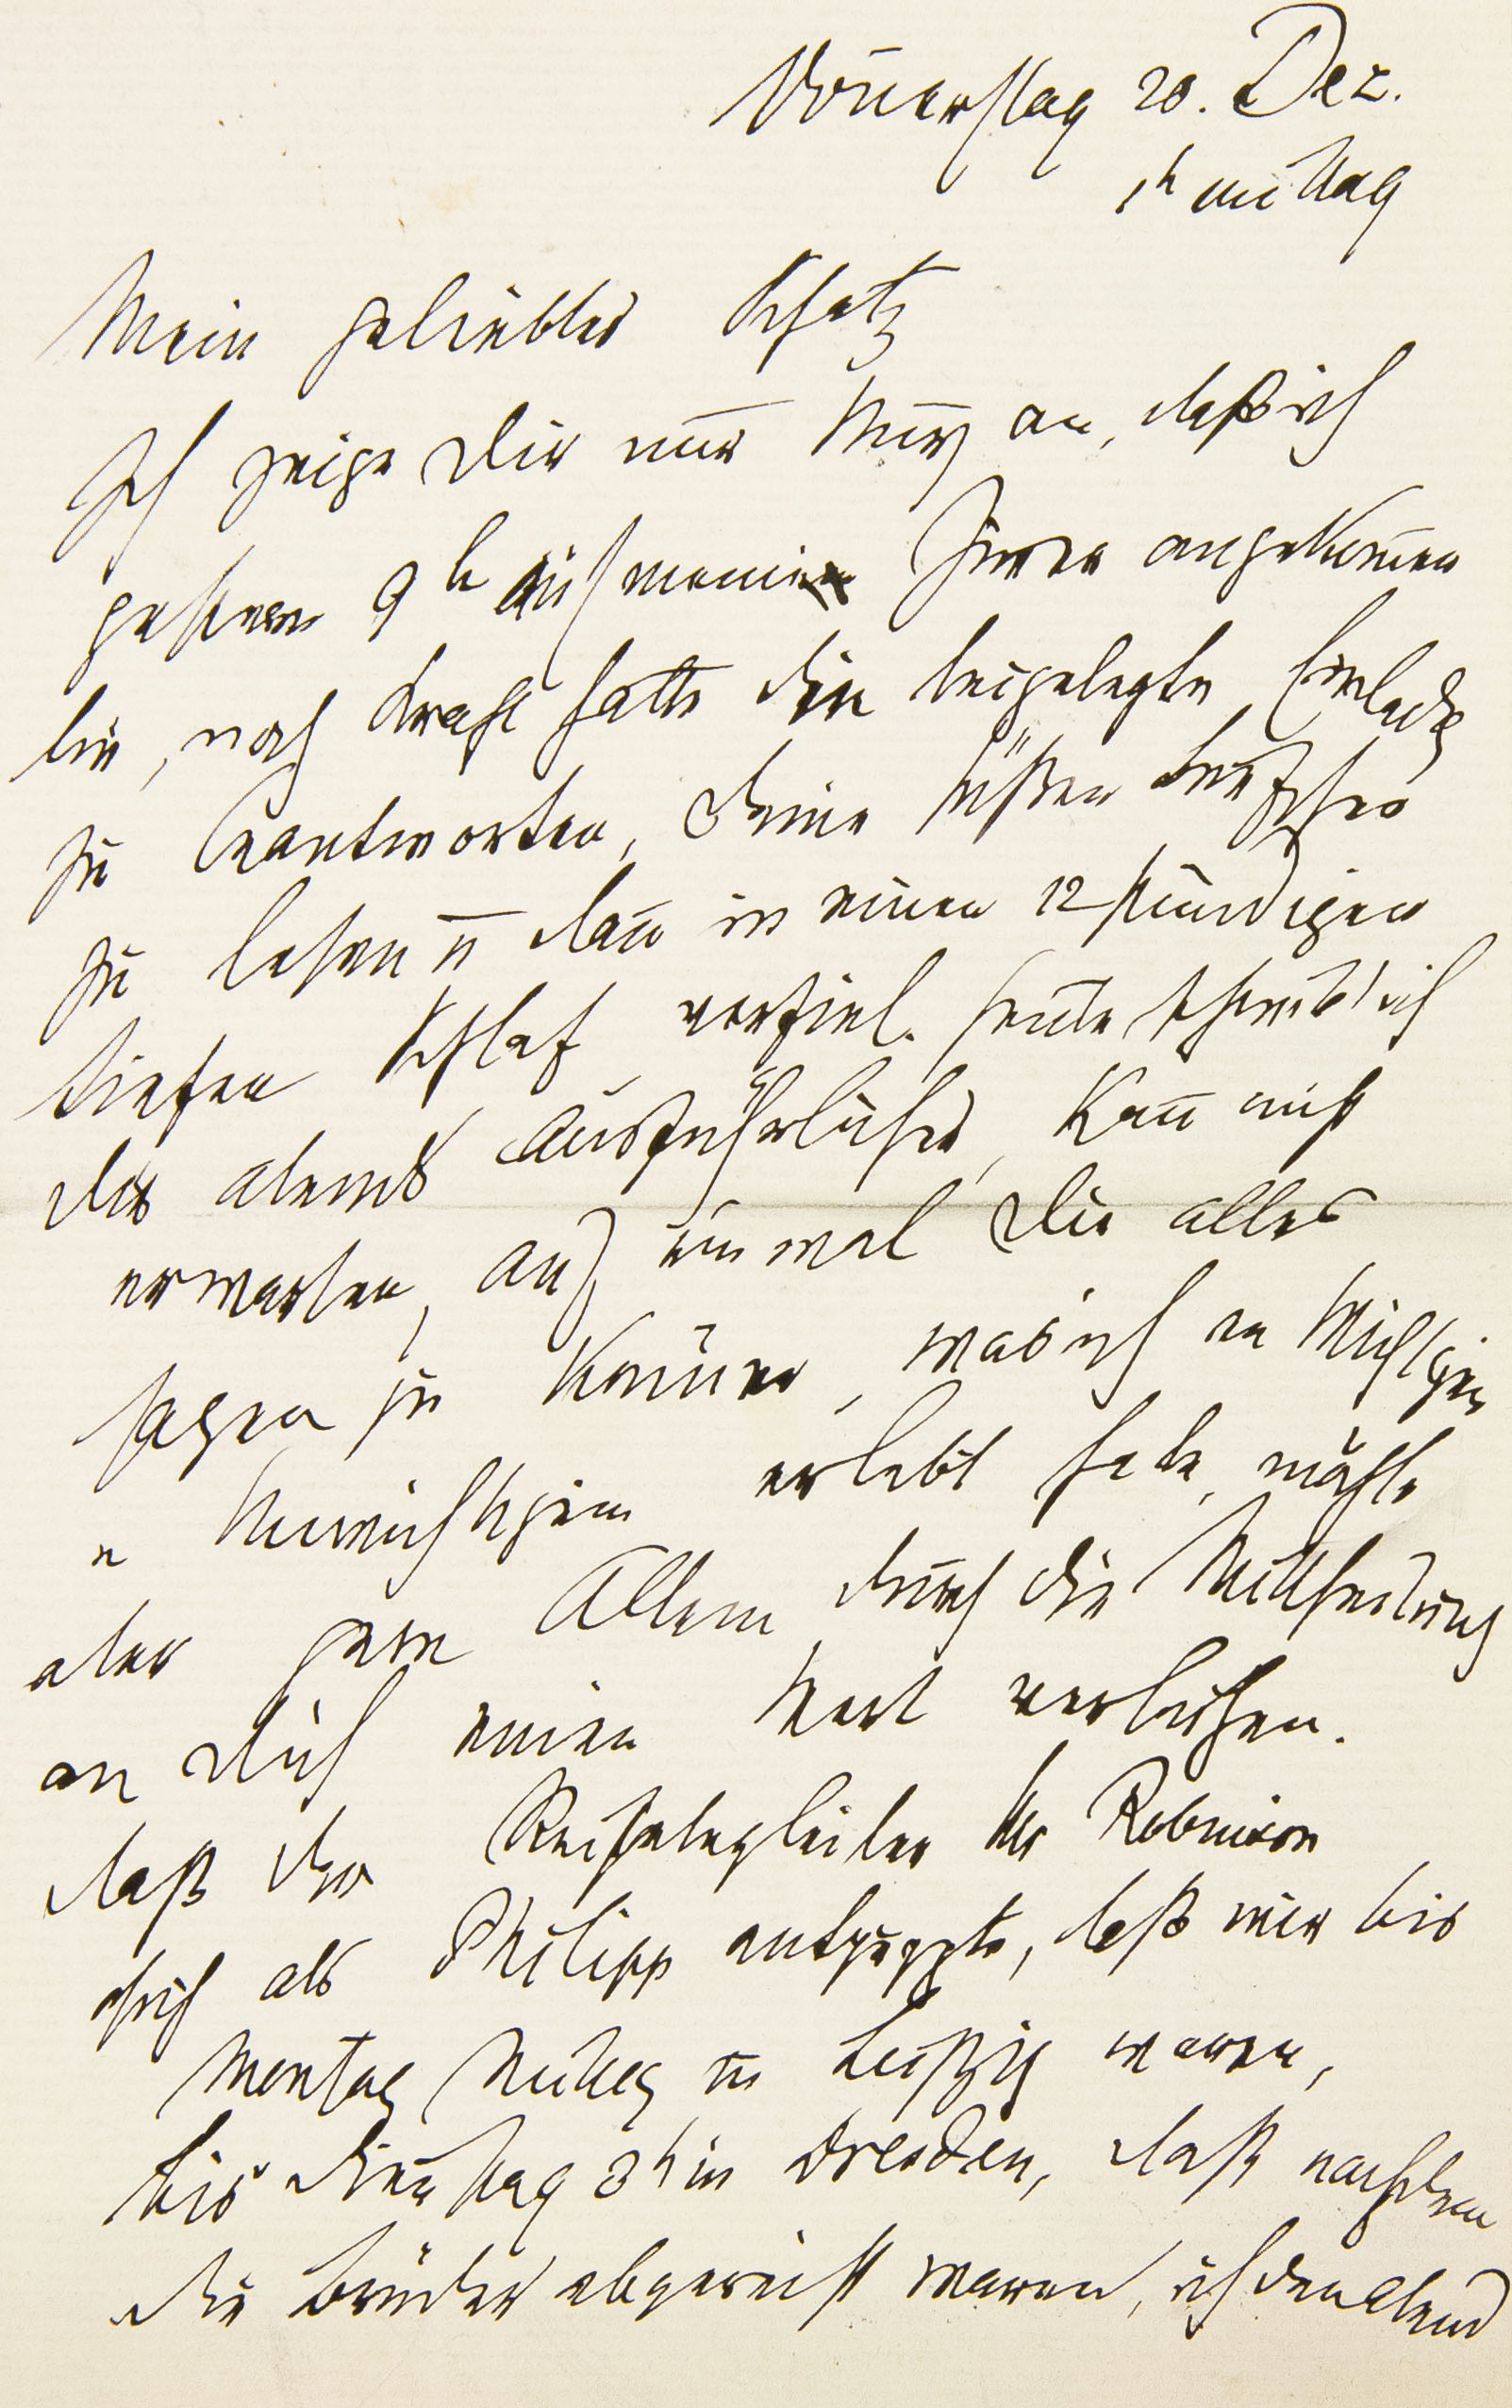 Donnerstag 20. Dez.
1h mittag
Mein geliebtes Schatz
Ich zeige Dir nur kurz an, daß ich
gestern 9h auf meinem Zimmer angekommen
bin, noch Kraft hatte die beigelegte Einladg
zu beantworten, Deine süßen
zu lesen u dann in einen 12 stündigen
tiefen Schlaf verfiel. Heute schreib' ich
Dir abends ausführliches, kann nicht
erwarten, auf einmal Dir alles
sagen zu können, was ich an Wichtigem
u Unwichtigem erlebt habe, möchte
aber gern Allem durch die Mittheilung
an Dich einen Wert verleihen.
daß der Reisebegleiter Mr Robinson
sich als Philipp entpuppte, daß wir bis
Montag Mittag in Leipzig waren,
bis Dienstag 3h in Dresden, daß nachdem
die Brüder abgereist waren, ich den Abend